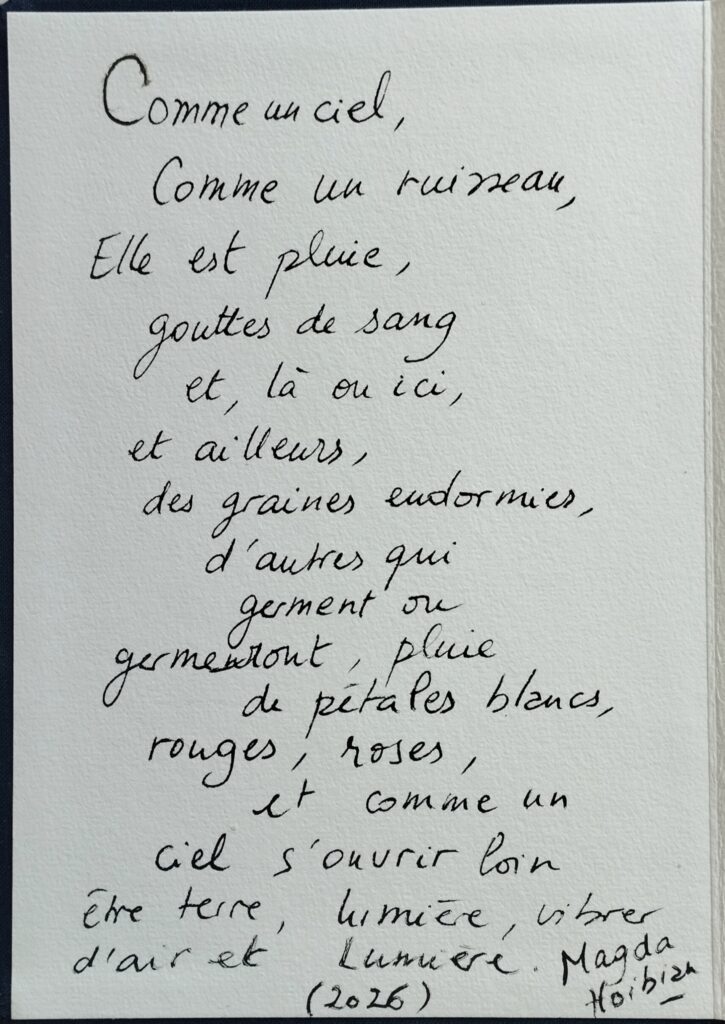 Comme un ciel,
Comme un ruisseau,
Elle est pluie,
gouttes de sang
et, là ou ici,
et ailleurs,
des graines endormies,
d'autres qui
germent ou
germeront, pluie
de pétales blancs,
rouges, roses,
et comme un
ciel s'ouvrir loin
être terre, lumière, vibrer
d'air et Lumière. Magda
(2026) Hoibian